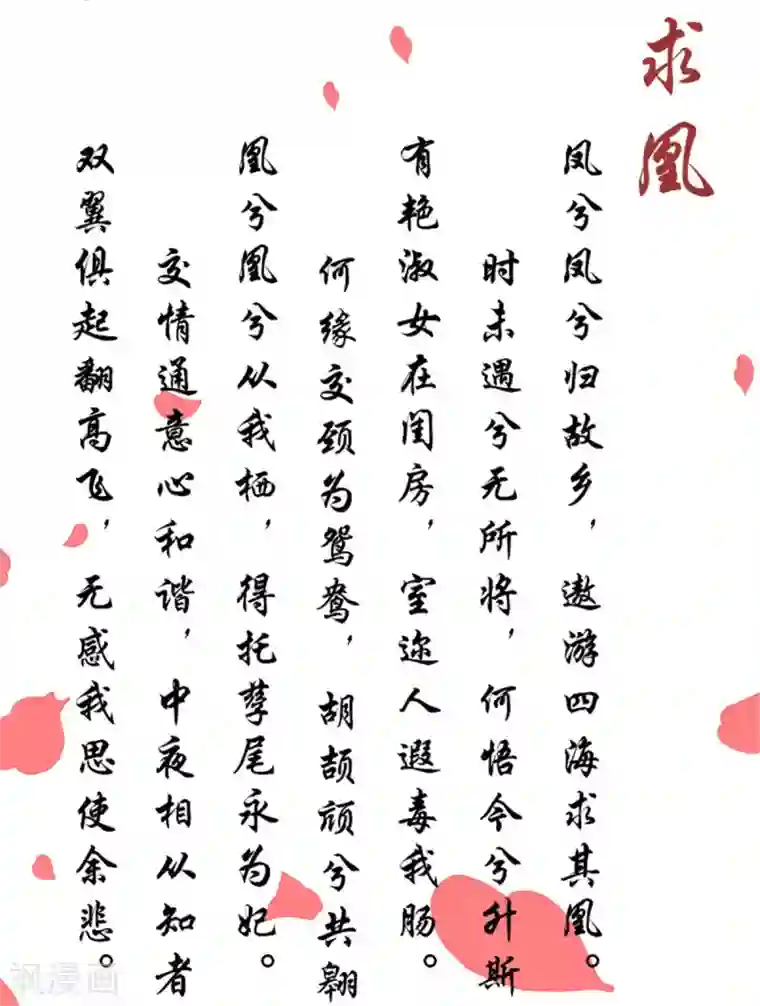 求凰
凤兮凤兮归故乡，遨游四海求其凰。
时未遇兮无所将，何悟今兮升斯
有艳淑女在闺房，室迩人遐毒我肠。
何缘交颈为鸳鸯，胡颉颃兮共翱
凰兮凰兮从我栖，得托孳尾永为妃。
交情通意心和谐，中夜相从知者
双翼俱起翻高飞，无感我思使余悲。
飒漫画